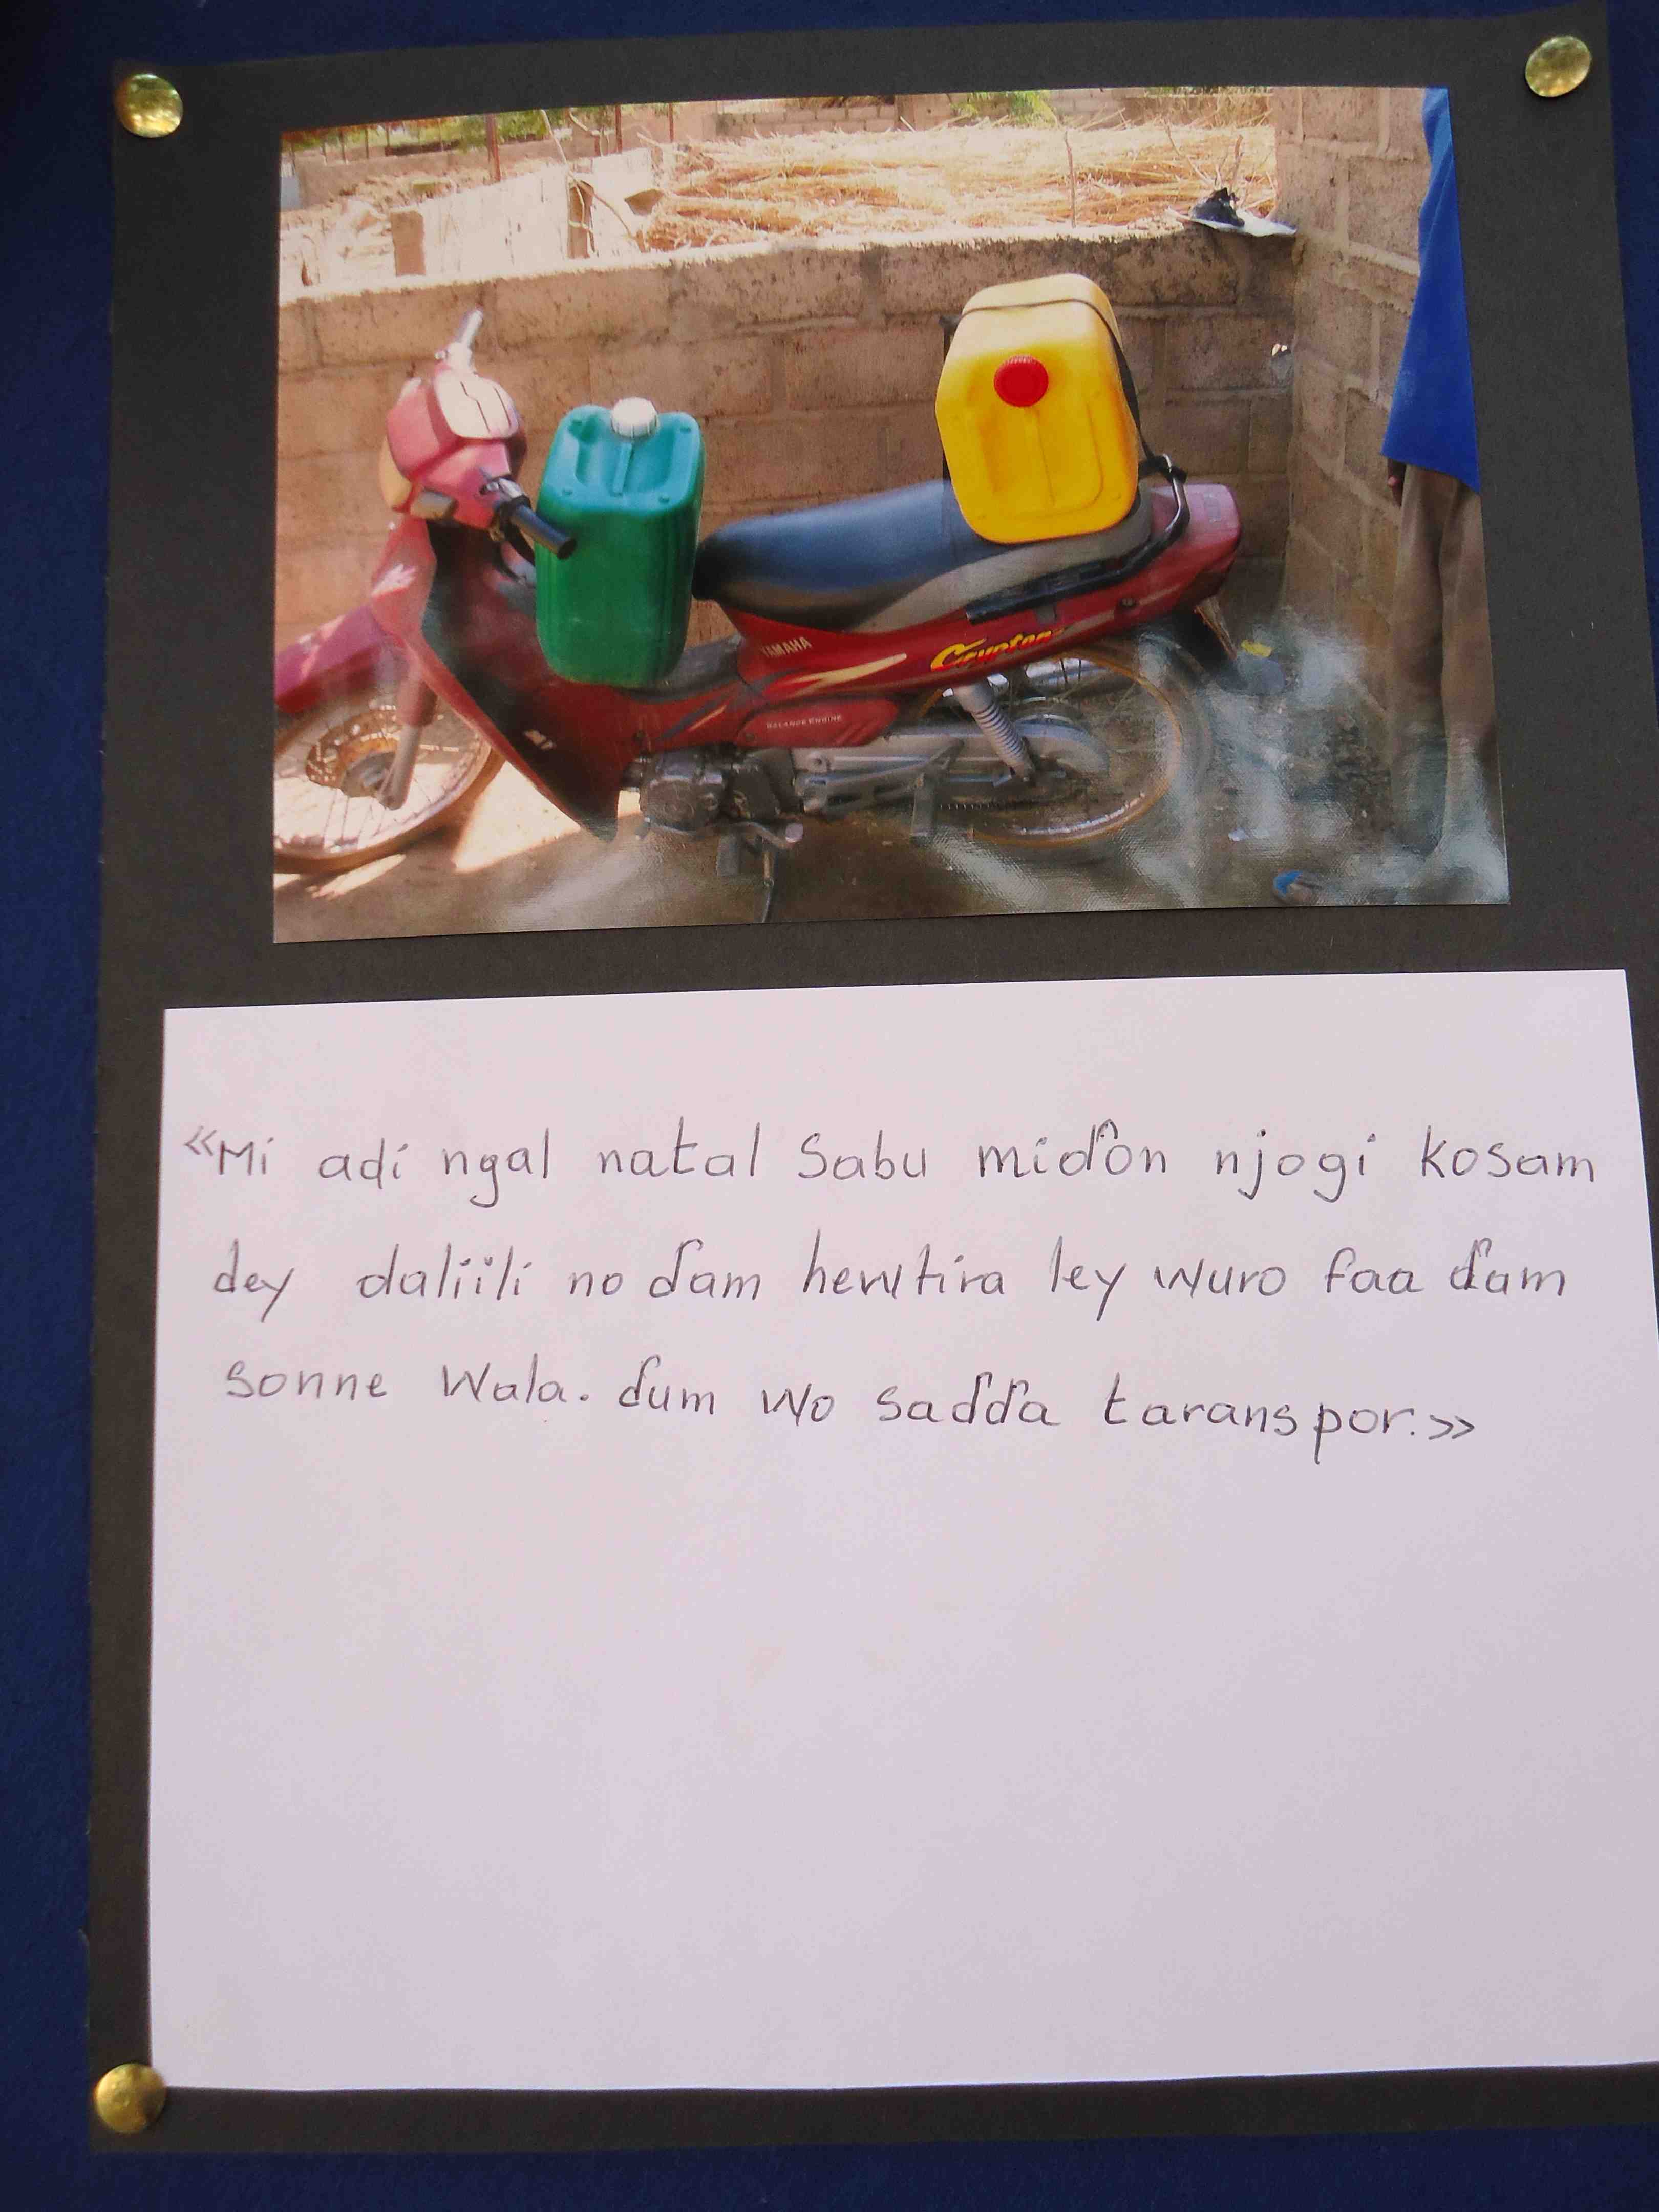 YAMAHA
Crypton
BALANCE ENGINE
«Mi adi ngal natal Sabu miɗon njogi kosam
dey daliili no ɗam hewtira ley wuro faa ɗam
sonne wala. ɗum wo saɗɗa taranspor.»